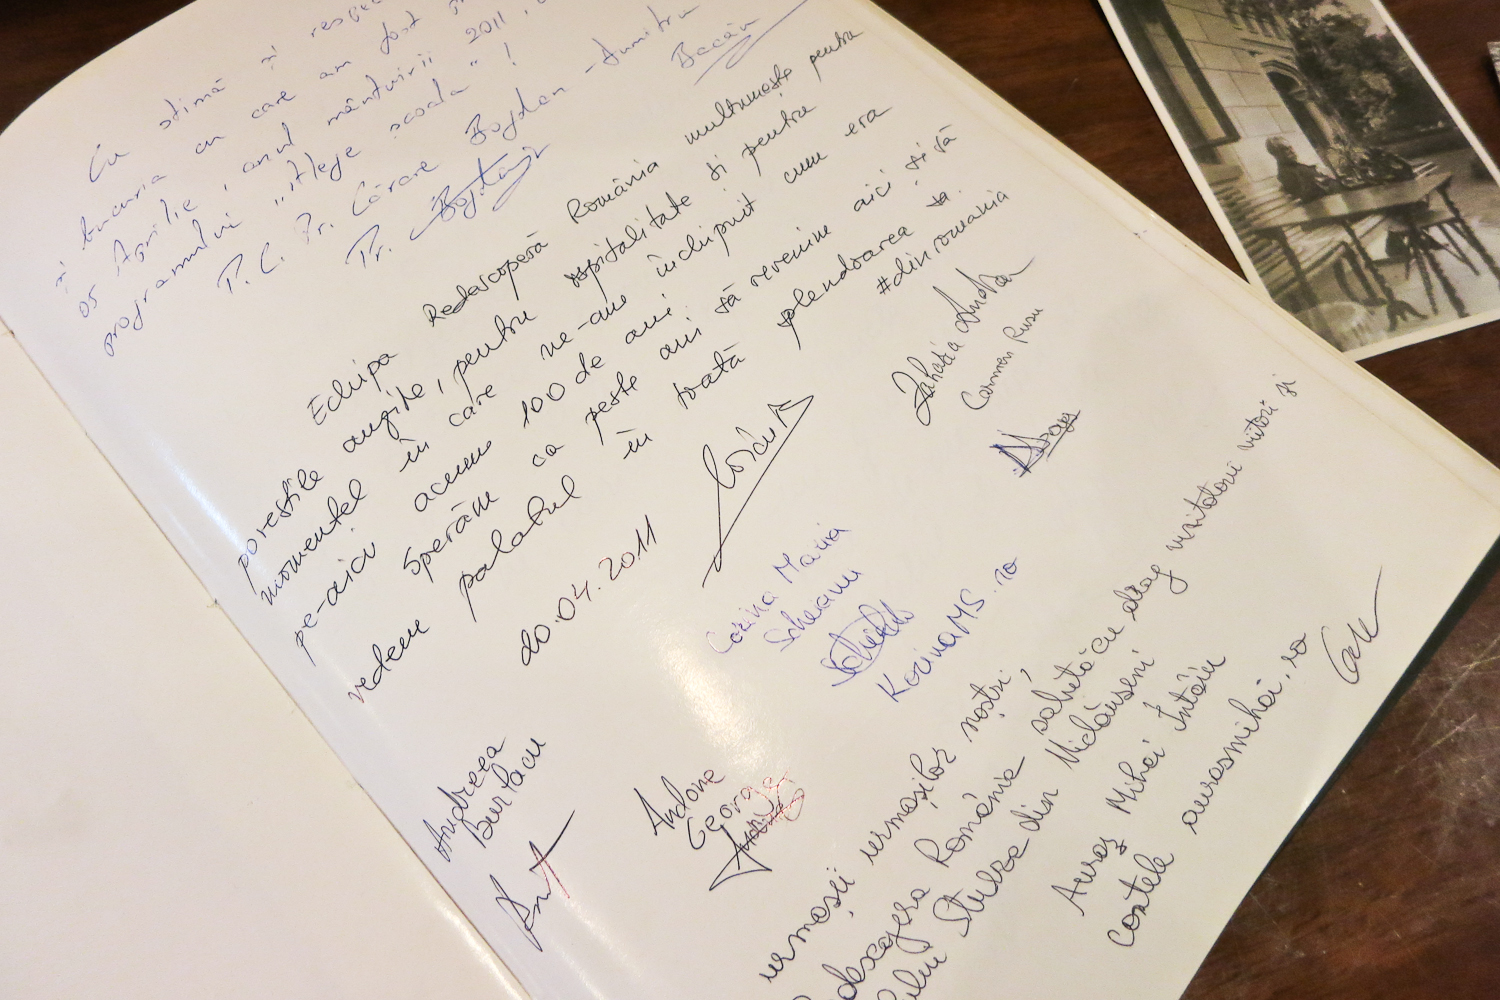 Cu stimă și
și bucuria cu care am fost
05 Aprilie, anul mântuirii 2011,
programului "Altfel școala"!
P. C. Pr. Cărare Bogdan-Dumitru
Pr. Bogdan
Bacău
Echipa Redescoperă România mulțumește pentru
poveștile auzite, pentru ospitalitate și pentru
momentel în care ne-am închipuit cum era
pe-aici acum 100 de ani.
Sperăm ca peste ani să revenim aici și să
vedem palatul în toată splendoarea sa.
#dinromania
20.04.2011
Zaharia Andra
Carmen Rusu
Corina Maria
Scheianu
KorinaMS.ro
Andreea
Burlacu
Andone
George
urmașii urmașilor noștri,
România salută cu drag vizitatorii viitori și
Sturdza din Miclăușeni
Auraș Mihai Întâiu
contele aurasmihai.ro